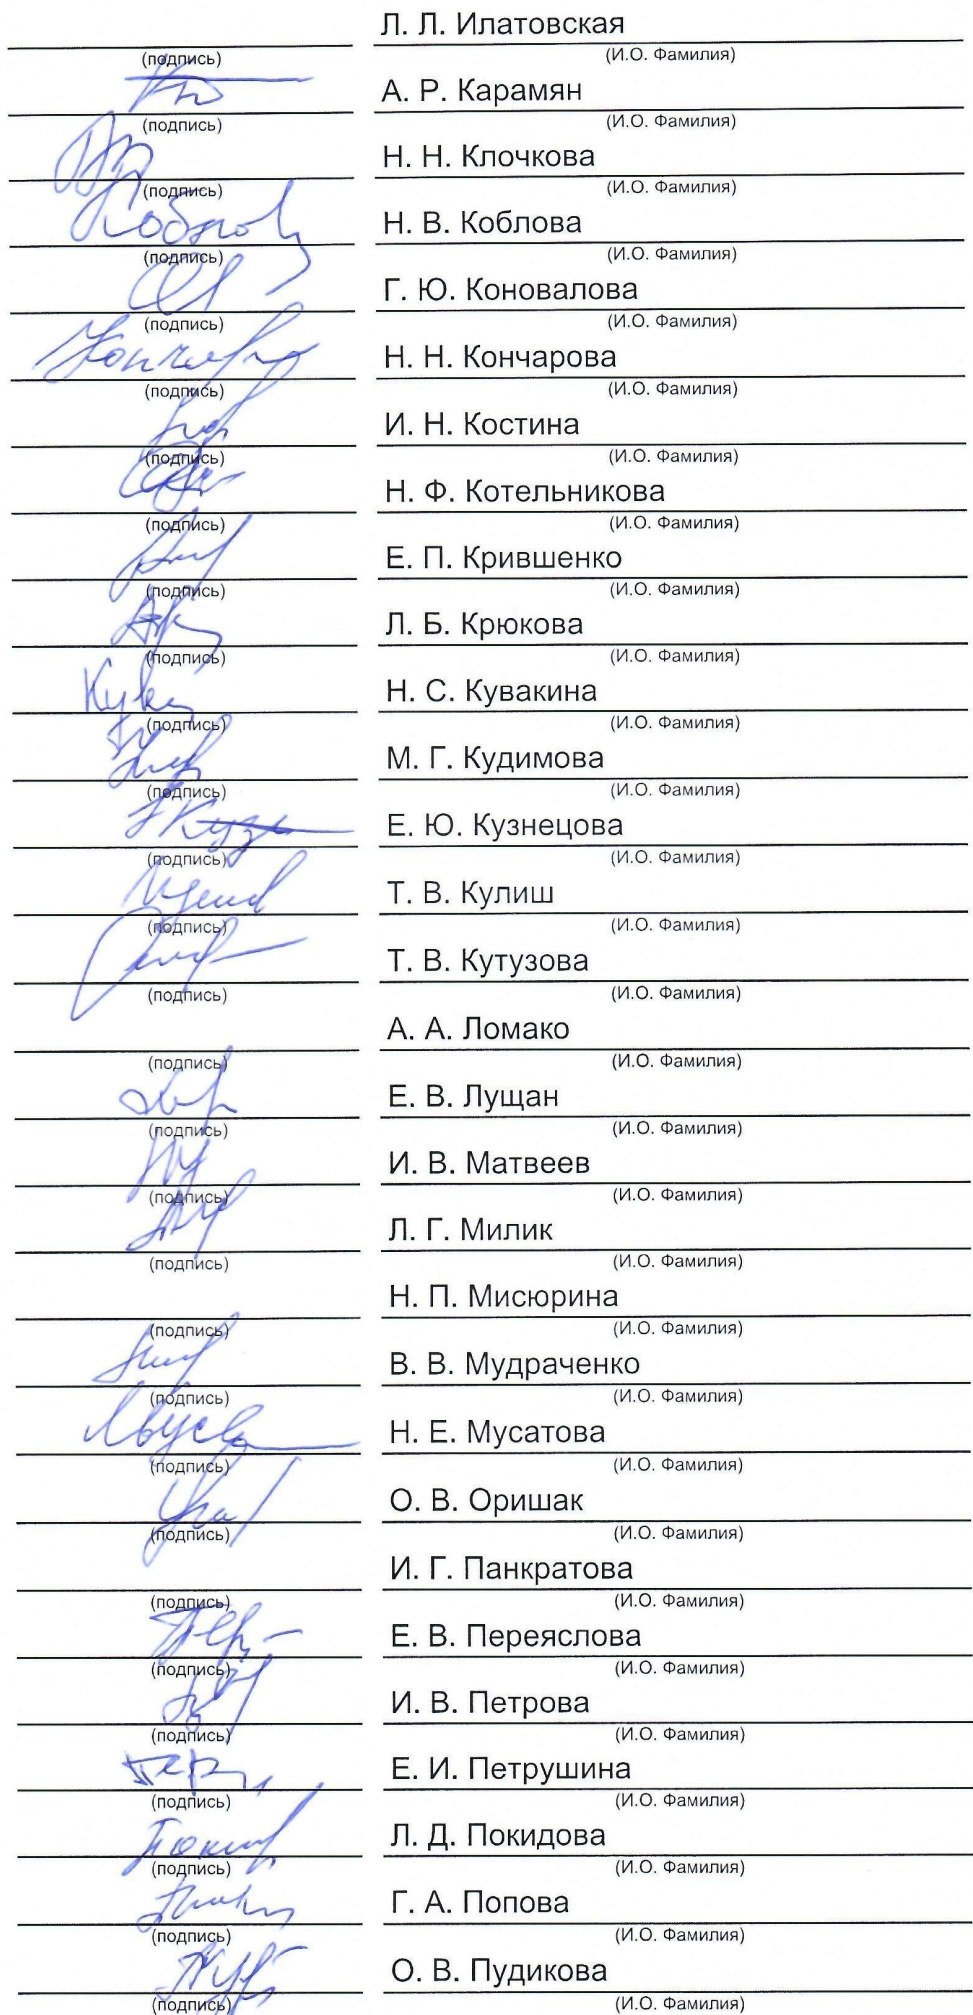 Л. Л. Илатовская
(подпись) (И.О. Фамилия)
А. Р. Карамян
(подпись) (И.О. Фамилия)
Н. Н. Клочкова
(подпись) (И.О. Фамилия)
Коблова Н. В. Коблова
(подпись) (И.О. Фамилия)
Г. Ю. Коновалова
(подпись) (И.О. Фамилия)
Н. Н. Кончарова
(подпись) (И.О. Фамилия)
И. Н. Костина
(подпись) (И.О. Фамилия)
Н. Ф. Котельникова
(подпись) (И.О. Фамилия)
Е. П. Крившенко
(подпись) (И.О. Фамилия)
Л. Б. Крюкова
(подпись) (И.О. Фамилия)
Н. С. Кувакина
(подпись) (И.О. Фамилия)
М. Г. Кудимова
(подпись) (И.О. Фамилия)
Е. Ю. Кузнецова
(подпись) (И.О. Фамилия)
Т. В. Кулиш
(подпись) (И.О. Фамилия)
Т. В. Кутузова
(подпись) (И.О. Фамилия)
А. А. Ломако
(подпись) (И.О. Фамилия)
Е. В. Лущан
(подпись) (И.О. Фамилия)
И. В. Матвеев
(подпись) (И.О. Фамилия)
Л. Г. Милик
(подпись) (И.О. Фамилия)
Н. П. Мисюрина
(подпись) (И.О. Фамилия)
В. В. Мудраченко
(подпись) (И.О. Фамилия)
Н. Е. Мусатова
(подпись) (И.О. Фамилия)
О. В. Оришак
(подпись) (И.О. Фамилия)
И. Г. Панкратова
(подпись) (И.О. Фамилия)
Е. В. Переяслова
(подпись) (И.О. Фамилия)
И. В. Петрова
(подпись) (И.О. Фамилия)
Е. И. Петрушина
(подпись) (И.О. Фамилия)
Л. Д. Покидова
(подпись) (И.О. Фамилия)
Г. А. Попова
(подпись) (И.О. Фамилия)
О. В. Пудикова
(подпись) (И.О. Фамилия)